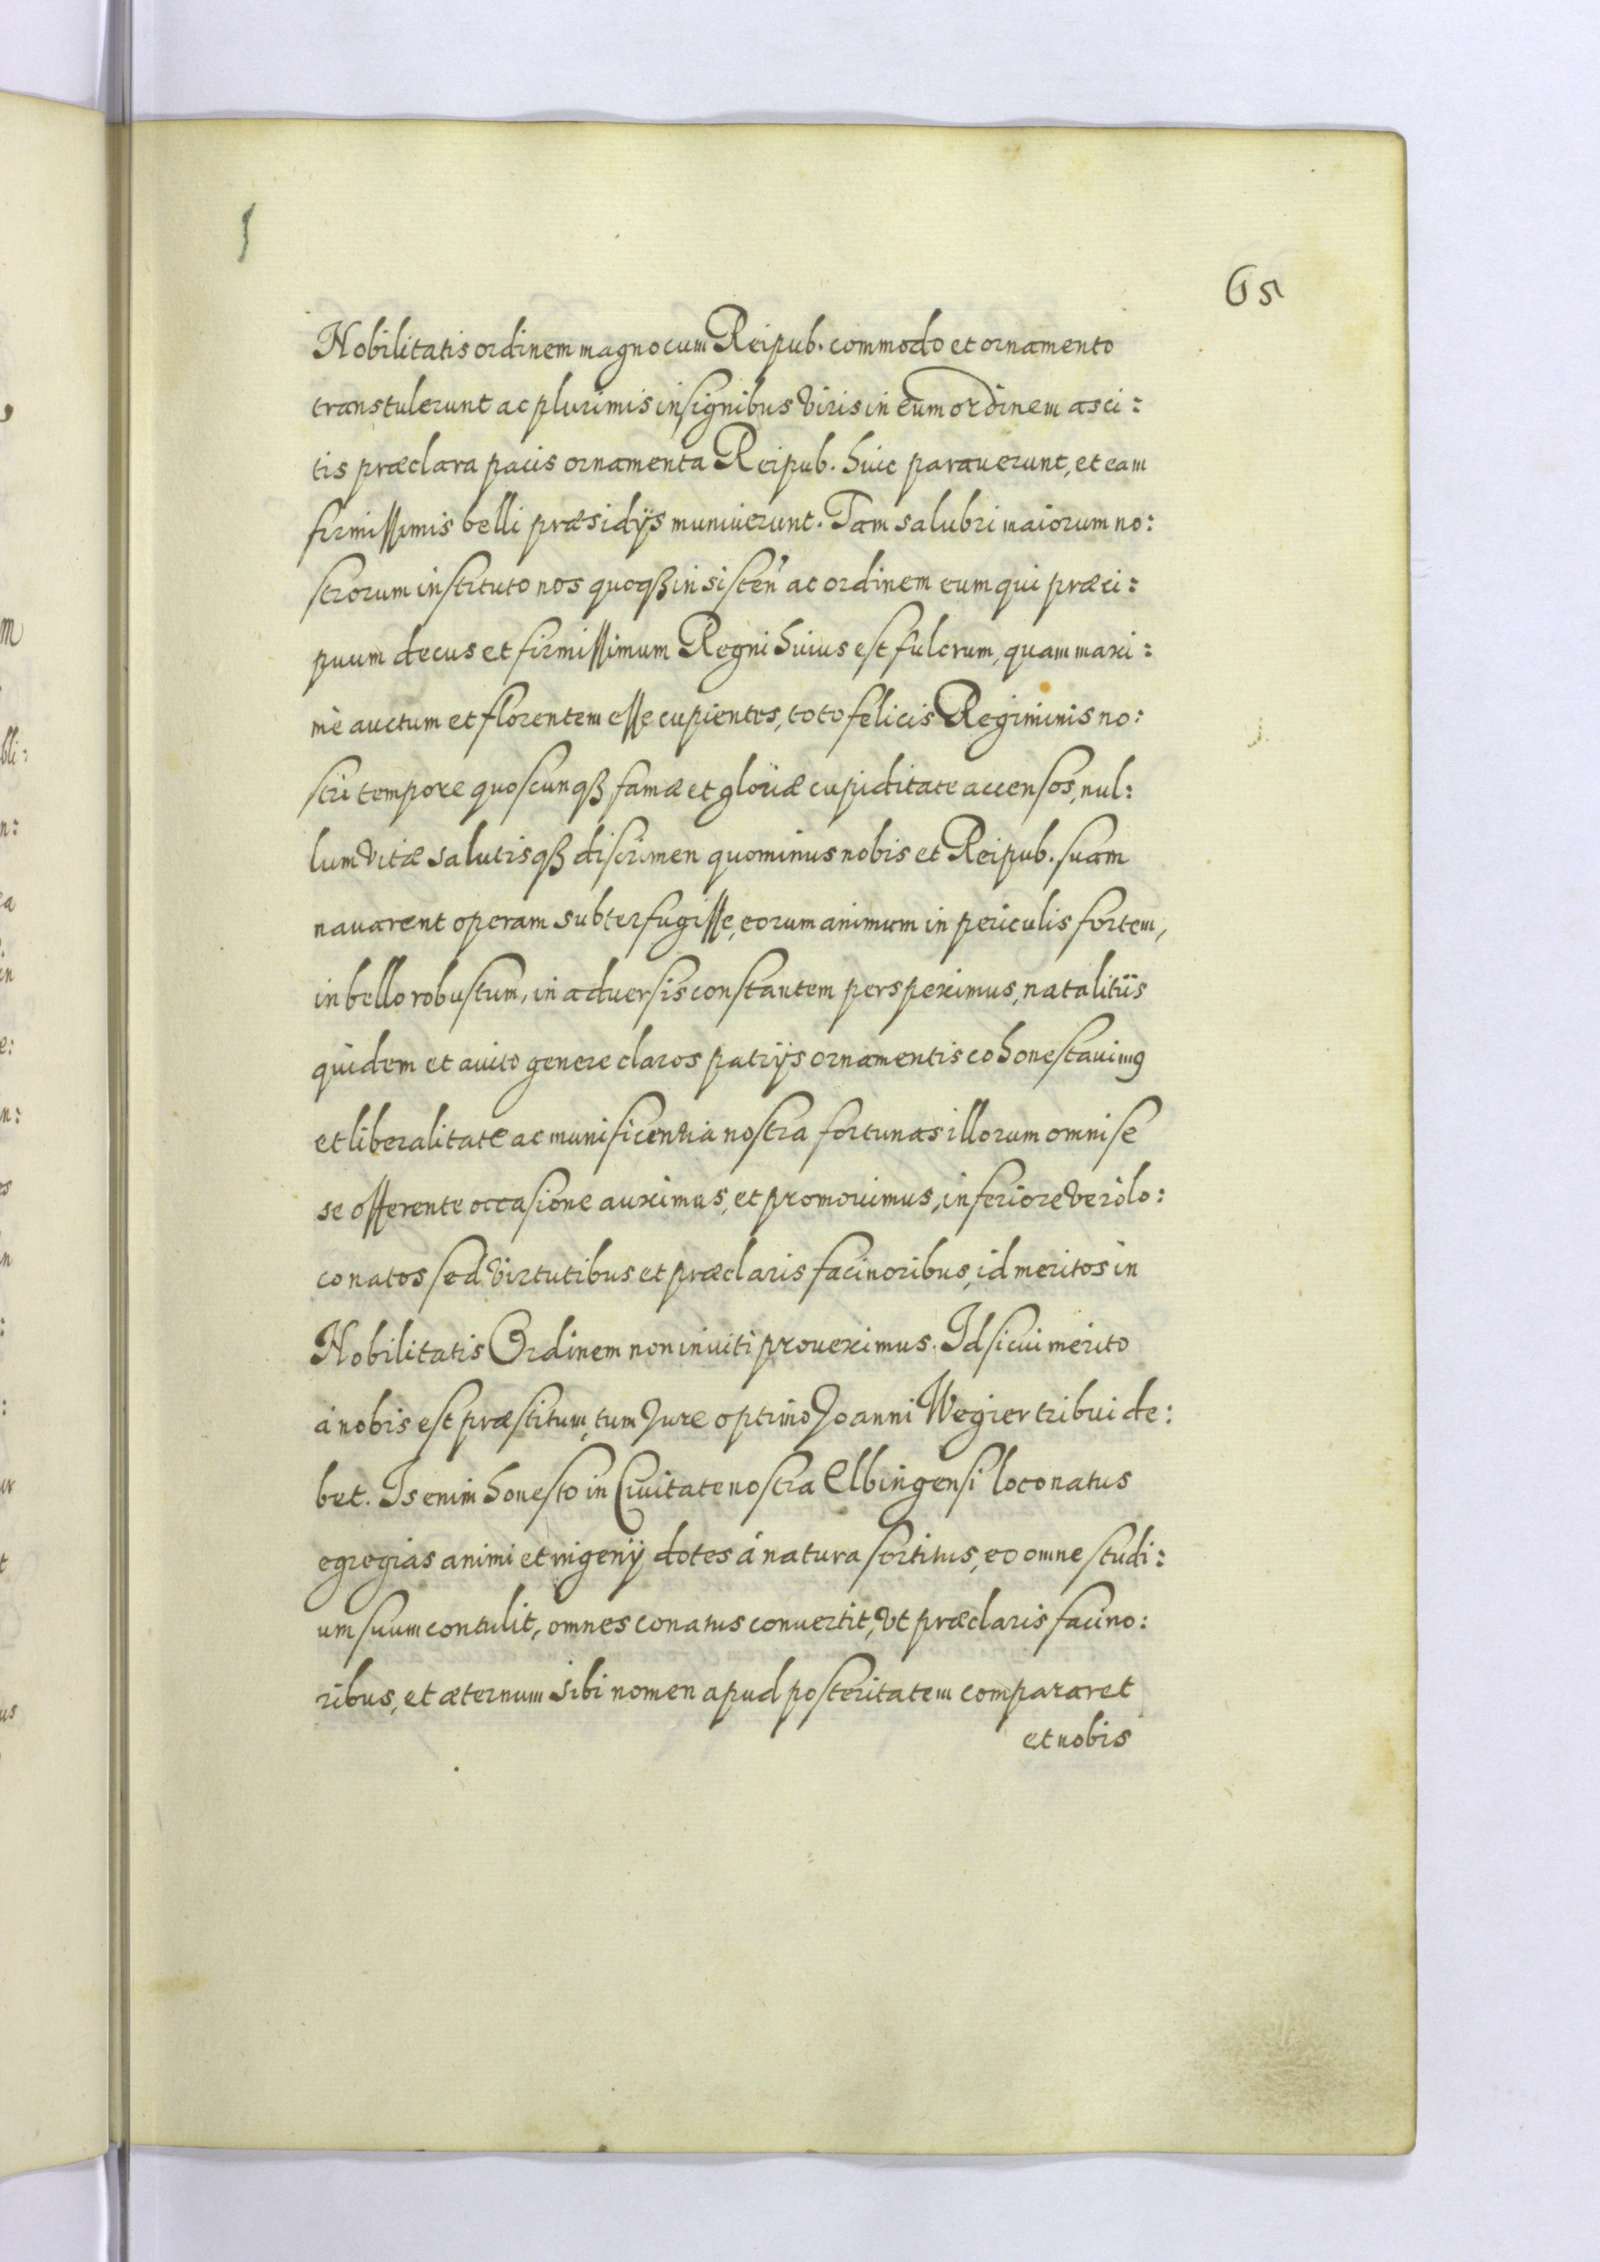 65
Nobilitatis ordinem magno cum Reipub. commodo et ornamento
transtulerunt ac plurimis insignibus viris in eum ordinem asci:
tis præclara pacis ornamenta Reipub. huic parauerunt, et eam
firmissimis belli præsidijs muniuerunt. Tam salubri maiorum no:
strorum instituto nos quoqꝫ insisten̄ ac ordinem eum qui præci:
puum decus et firmissimum Regni huius est fulcrum, quam maxi:
mè auctum et florentem esse cupientes, toto felicis Regiminis no:
stri tempore quoscunqꝫ famæ et gloriæ cupiditate accensos, nul:
lum vitæ salutisqꝫ discrimen quominus nobis et Reipub. suam
nauarent operam subterfugisse, eorum animum in periculis fortem,
in bello robustum, in aduersis constantem perspeximus, natalitiis
quidem et auito genere claros patrijs ornamentis cohonestauimꝰ
et liberalitate ac munificentia nostra fortunas illorum omni sè
se offerente occasione auximus, et promouimus, inferiore verò lo:
co natos sed virtutibus et præclaris facinoribus, id meritos in
Nobilitatis Ordinem non inuiti proueximus. Id si cui merito
à nobis est præstitum, tum Jure optimo Joanni Wegier tribui de:
bet. Is enim honesto in Ciuitate nostra Elbingensi loco natus
egregias animi et ingenij dotes à natura sortitus, eo omne studi:
um suum contulit, omnes conatus conuertit, vt præclaris facino:
ribus, et æternum sibi nomen apud posteritatem compararet
et nobis